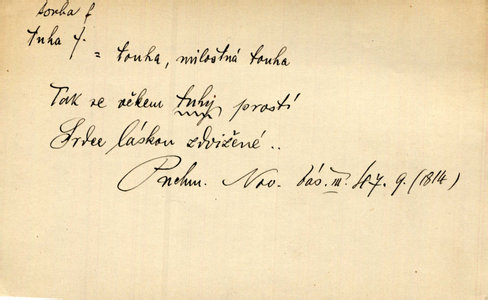 touha f
tuha f.
= touha, milostná touha
Tak se věkem tuhy prostí
Srdce láskou zdvižené..
Puchm. Nov. bás. III. 47. 9. (1814)